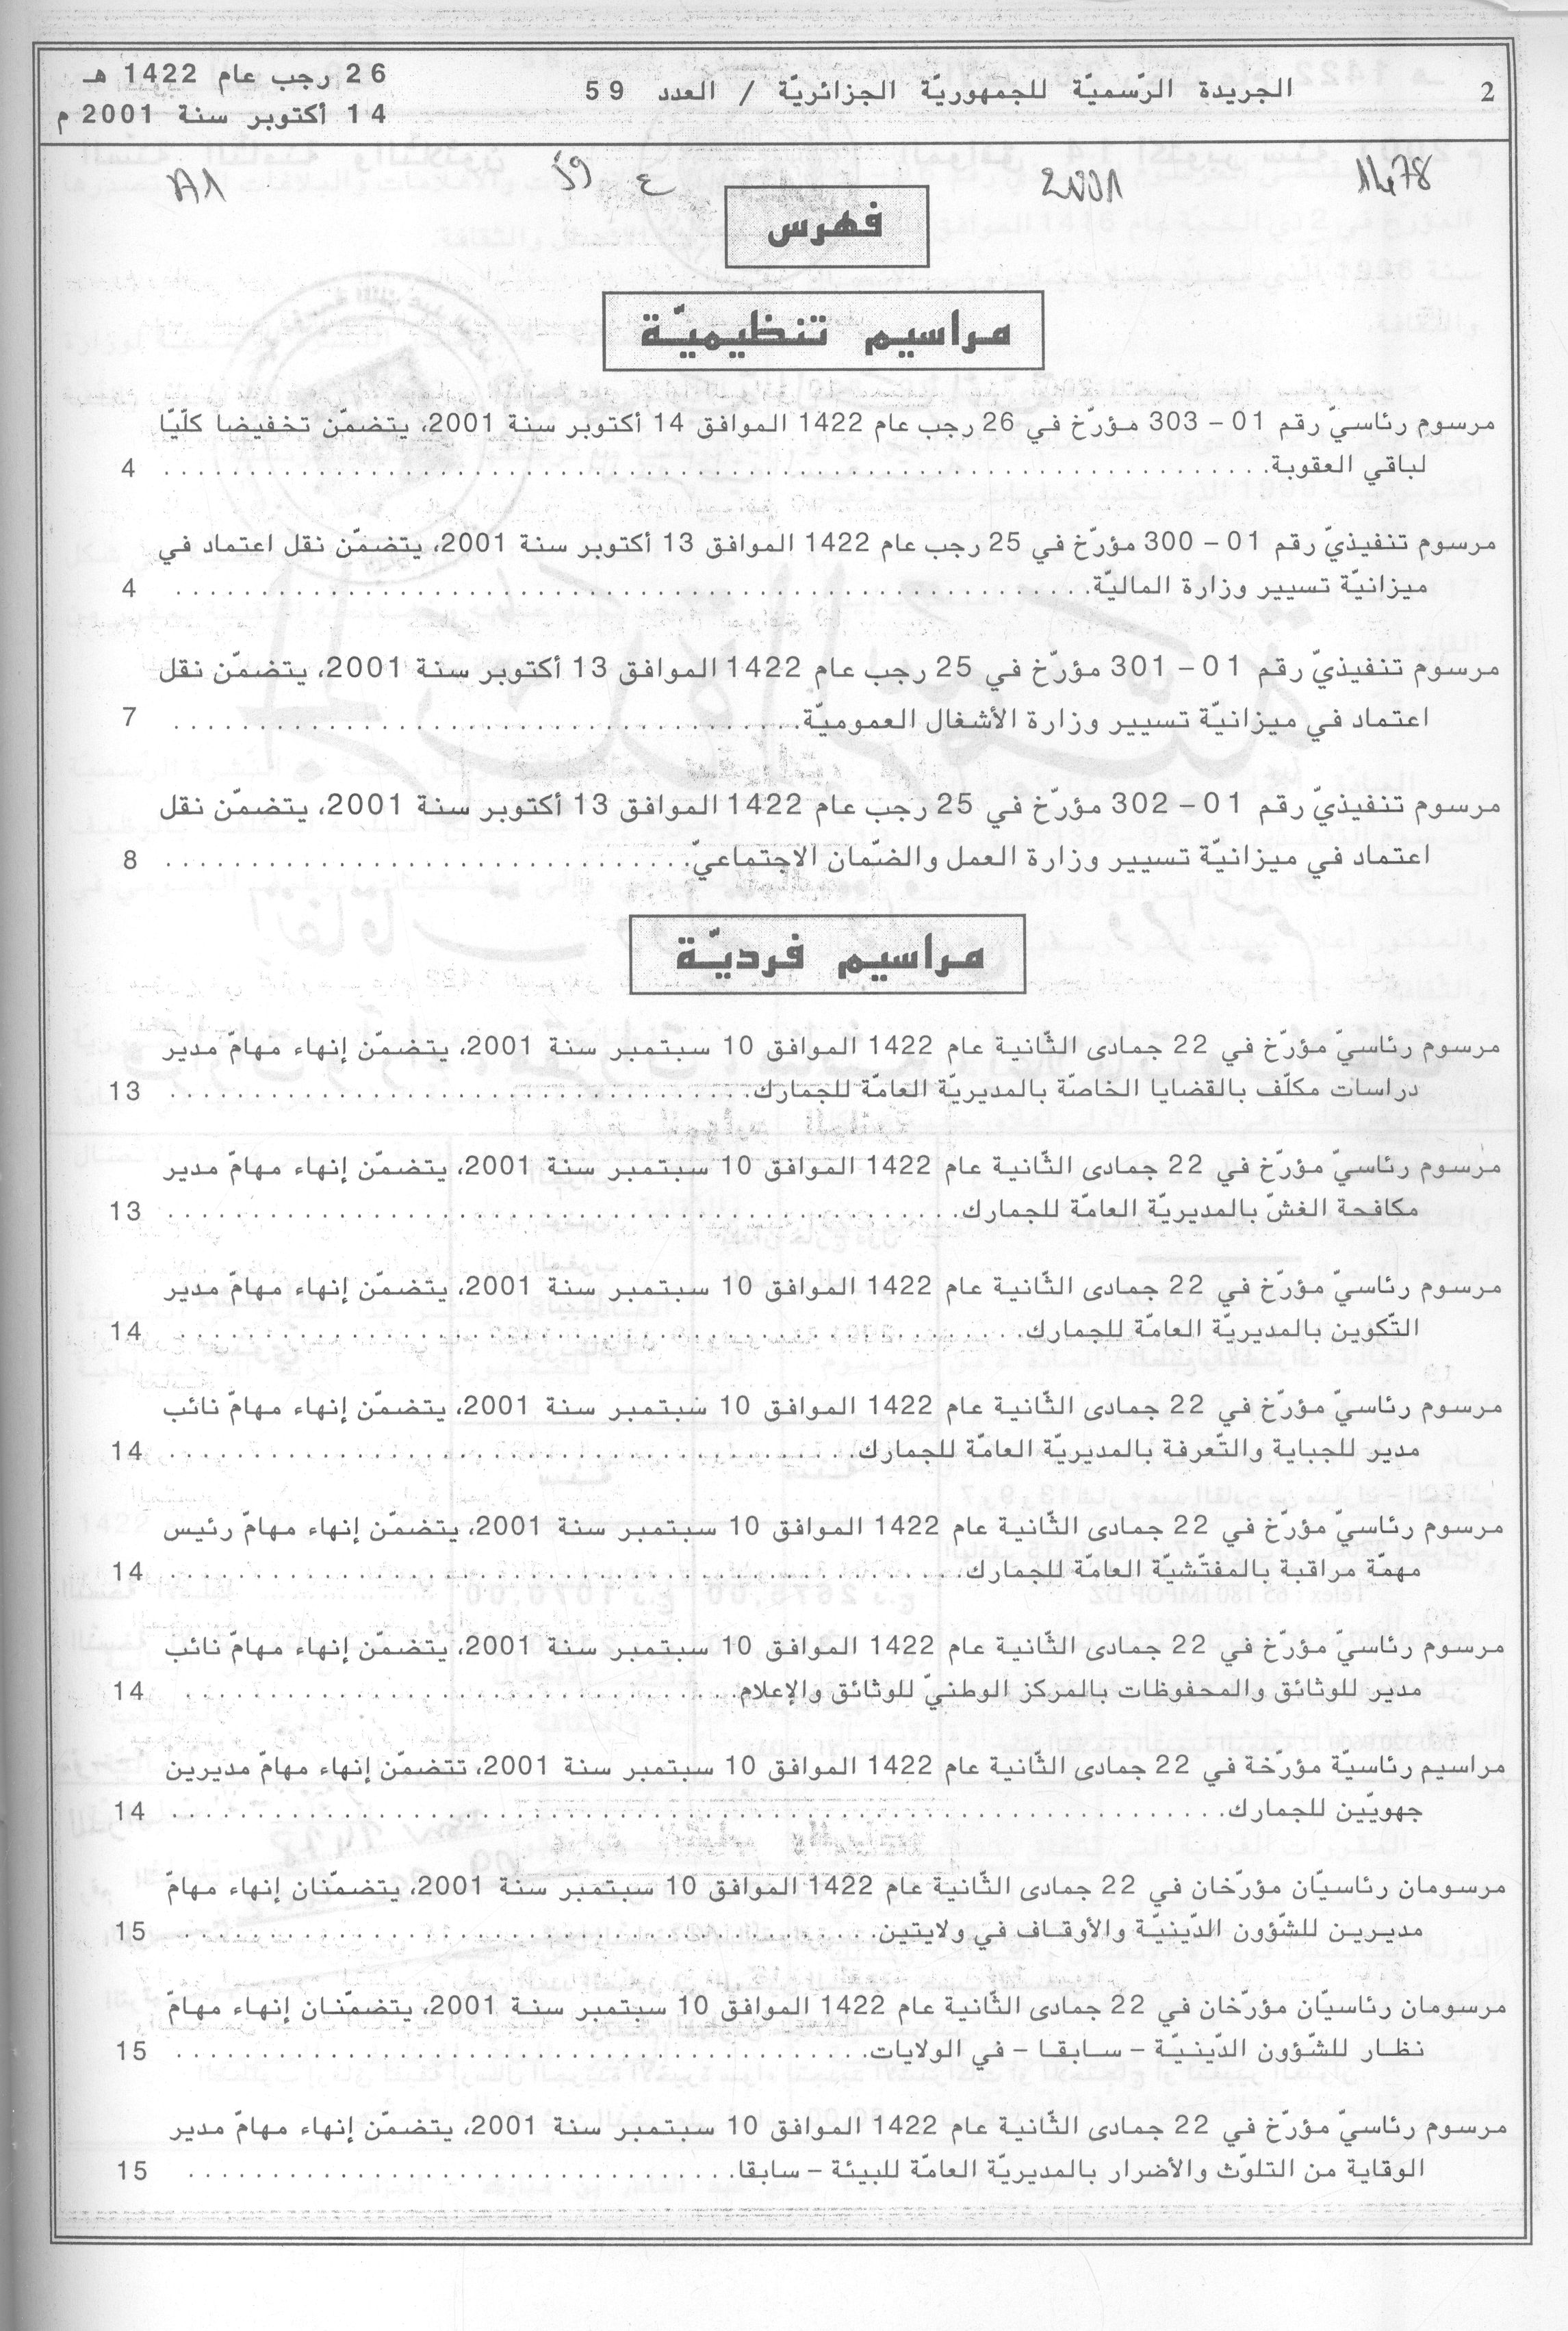 2
الجريدة الرّسميّة للجمهوريّة الجزائريّة / العدد 59
26 رجب عام 1422 هـ
14 أكتوبر سنة 2001 م
1478
2001
ع 59
A1
فهرس
مراسيم تنظيميّة
مرسوم رئاسيّ رقم 01 – 303 مؤرّخ في 26 رجب عام 1422 الموافق 14 أكتوبر سنة 2001، يتضمّن تخفيضا كلّيّا
لباقي العقوبة. 4
مرسوم تنفيذيّ رقم 01 – 300 مؤرّخ في 25 رجب عام 1422 الموافق 13 أكتوبر سنة 2001، يتضمّن نقل اعتماد في
ميزانيّة تسيير وزارة الماليّة. 4
مرسوم تنفيذيّ رقم 01 – 301 مؤرّخ في 25 رجب عام 1422 الموافق 13 أكتوبر سنة 2001، يتضمّن نقل
اعتماد في ميزانيّة تسيير وزارة الأشغال العموميّة. 7
مرسوم تنفيذيّ رقم 01 – 302 مؤرّخ في 25 رجب عام 1422 الموافق 13 أكتوبر سنة 2001، يتضمّن نقل
اعتماد في ميزانيّة تسيير وزارة العمل والضّمان الاجتماعيّ. 8
مراسيم فرديّة
مرسوم رئاسيّ مؤرّخ في 22 جمادى الثّانية عام 1422 الموافق 10 سبتمبر سنة 2001، يتضمّن إنهاء مهامّ مدير
دراسات مكلّف بالقضايا الخاصّة بالمديريّة العامّة للجمارك. 13
مرسوم رئاسيّ مؤرّخ في 22 جمادى الثّانية عام 1422 الموافق 10 سبتمبر سنة 2001، يتضمّن إنهاء مهامّ مدير
مكافحة الغشّ بالمديريّة العامّة للجمارك. 13
مرسوم رئاسيّ مؤرّخ في 22 جمادى الثّانية عام 1422 الموافق 10 سبتمبر سنة 2001، يتضمّن إنهاء مهامّ مدير
التّكوين بالمديريّة العامّة للجمارك. 14
مرسوم رئاسيّ مؤرّخ في 22 جمادى الثّانية عام 1422 الموافق 10 سبتمبر سنة 2001، يتضمّن إنهاء مهامّ نائب
مدير للجباية والتّعرفة بالمديريّة العامّة للجمارك. 14
مرسوم رئاسيّ مؤرّخ في 22 جمادى الثّانية عام 1422 الموافق 10 سبتمبر سنة 2001، يتضمّن إنهاء مهامّ رئيس
مهمّة مراقبة بالمفتّشيّة العامّة للجمارك. 14
مرسوم رئاسيّ مؤرّخ في 22 جمادى الثّانية عام 1422 الموافق 10 سبتمبر سنة 2001، يتضمّن إنهاء مهامّ نائب
مدير للوثائق والمحفوظات بالمركز الوطنيّ للوثائق والإعلام. 14
مراسيم رئاسيّة مؤرّخة في 22 جمادى الثّانية عام 1422 الموافق 10 سبتمبر سنة 2001، تتضمّن إنهاء مهامّ مديرين
جهويّين للجمارك. 14
مرسومان رئاسيّان مؤرّخان في 22 جمادى الثّانية عام 1422 الموافق 10 سبتمبر سنة 2001، يتضمّنان إنهاء مهامّ
مديرين للشّؤون الدّينيّة والأوقاف في ولايتين. 15
مرسومان رئاسيّان مؤرّخان في 22 جمادى الثّانية عام 1422 الموافق 10 سبتمبر سنة 2001، يتضمّنان إنهاء مهامّ
نظار للشّؤون الدّينيّة – سابقا – في الولايات. 15
مرسوم رئاسيّ مؤرّخ في 22 جمادى الثّانية عام 1422 الموافق 10 سبتمبر سنة 2001، يتضمّن إنهاء مهامّ مدير
الوقاية من التلوّث والأضرار بالمديريّة العامّة للبيئة – سابقا. 15